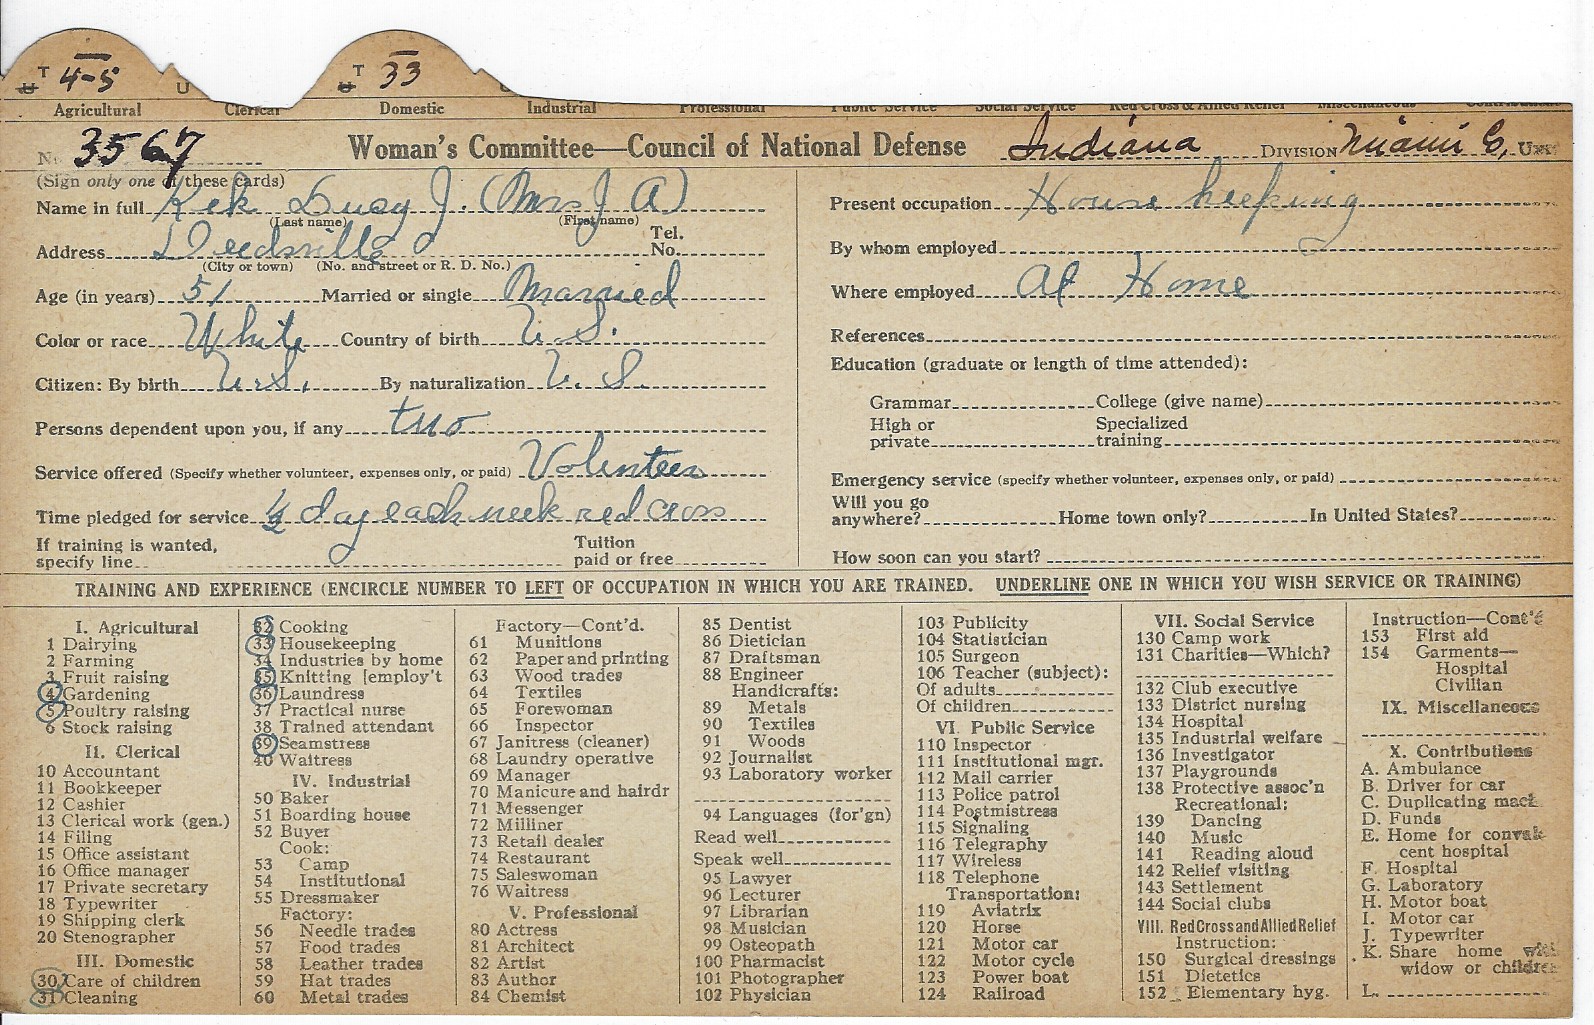 T 4-5 U T 33
Agricultural Clerical Domestic Industrial Professional Public Service Social Service Red Cross & Allied Relief Miscellaneous Contributions
No. 3567 Woman's Committee—Council of National Defense Indiana DIVISION Miami Co. Unit
(Sign only one of these cards)
Name in full Kek Susy J. (Mrs J A)
(Last name) (First name)
Address Deedsville Tel. No.
(City or town) (No. and street or R. D. No.)
Age (in years) 51 Married or single Married
Color or race White Country of birth U. S.
Citizen: By birth U.S. By naturalization U. S.
Persons dependent upon you, if any two
Service offered (Specify whether volunteer, expenses only, or paid) Volunteer
Time pledged for service 1/2 day each week red cross
If training is wanted, specify line Tuition paid or free
Present occupation House keeping
By whom employed
Where employed At Home
References
Education (graduate or length of time attended):
Grammar College (give name)
High or private Specialized training
Emergency service (specify whether volunteer, expenses only, or paid)
Will you go anywhere? Home town only? In United States?
How soon can you start?
TRAINING AND EXPERIENCE (ENCIRCLE NUMBER TO LEFT OF OCCUPATION IN WHICH YOU ARE TRAINED. UNDERLINE ONE IN WHICH YOU WISH SERVICE OR TRAINING)
I. Agricultural
1 Dairying
2 Farming
3 Fruit raising
4 Gardening
5 Poultry raising
6 Stock raising
II. Clerical
10 Accountant
11 Bookkeeper
12 Cashier
13 Clerical work (gen.)
14 Filing
15 Office assistant
16 Office manager
17 Private secretary
18 Typewriter
19 Shipping clerk
20 Stenographer
III. Domestic
30 Care of children
31 Cleaning
32 Cooking
33 Housekeeping
34 Industries by home
35 Knitting [employ't
36 Laundress
37 Practical nurse
38 Trained attendant
39 Seamstress
40 Waitress
IV. Industrial
50 Baker
51 Boarding house
52 Buyer
Cook:
53 Camp
54 Institutional
55 Dressmaker
Factory:
56 Needle trades
57 Food trades
58 Leather trades
59 Hat trades
60 Metal trades
Factory—Cont'd.
61 Munitions
62 Paper and printing
63 Wood trades
64 Textiles
65 Forewoman
66 Inspector
67 Janitress (cleaner)
68 Laundry operative
69 Manager
70 Manicure and hairdr
71 Messenger
72 Milliner
73 Retail dealer
74 Restaurant
75 Saleswoman
76 Waitress
V. Professional
80 Actress
81 Architect
82 Artist
83 Author
84 Chemist
85 Dentist
86 Dietician
87 Draftsman
88 Engineer
Handicrafts:
89 Metals
90 Textiles
91 Woods
92 Journalist
93 Laboratory worker
94 Languages (for'gn)
Read well
Speak well
95 Lawyer
96 Lecturer
97 Librarian
98 Musician
99 Osteopath
100 Pharmacist
101 Photographer
102 Physician
103 Publicity
104 Statistician
105 Surgeon
106 Teacher (subject):
Of adults
Of children
VI. Public Service
110 Inspector
111 Institutional mgr.
112 Mail carrier
113 Police patrol
114 Postmistress
115 Signaling
116 Telegraphy
117 Wireless
118 Telephone
Transportation:
119 Aviatrix
120 Horse
121 Motor car
122 Motor cycle
123 Power boat
124 Railroad
VII. Social Service
130 Camp work
131 Charities—Which?
132 Club executive
133 District nursing
134 Hospital
135 Industrial welfare
136 Investigator
137 Playgrounds
138 Protective assoc'n
Recreational:
139 Dancing
140 Music
141 Reading aloud
142 Relief visiting
143 Settlement
144 Social clubs
VIII. Red Cross and Allied Relief
Instruction:
150 Surgical dressings
151 Dietetics
152 Elementary hyg.
Instruction—Cont'd
153 First aid
154 Garments—
Hospital
Civilian
IX. Miscellaneous
X. Contributions
A. Ambulance
B. Driver for car
C. Duplicating mach.
D. Funds
E. Home for convales-
cent hospital
F. Hospital
G. Laboratory
H. Motor boat
I. Motor car
J. Typewriter
K. Share home with
widow or children
L.